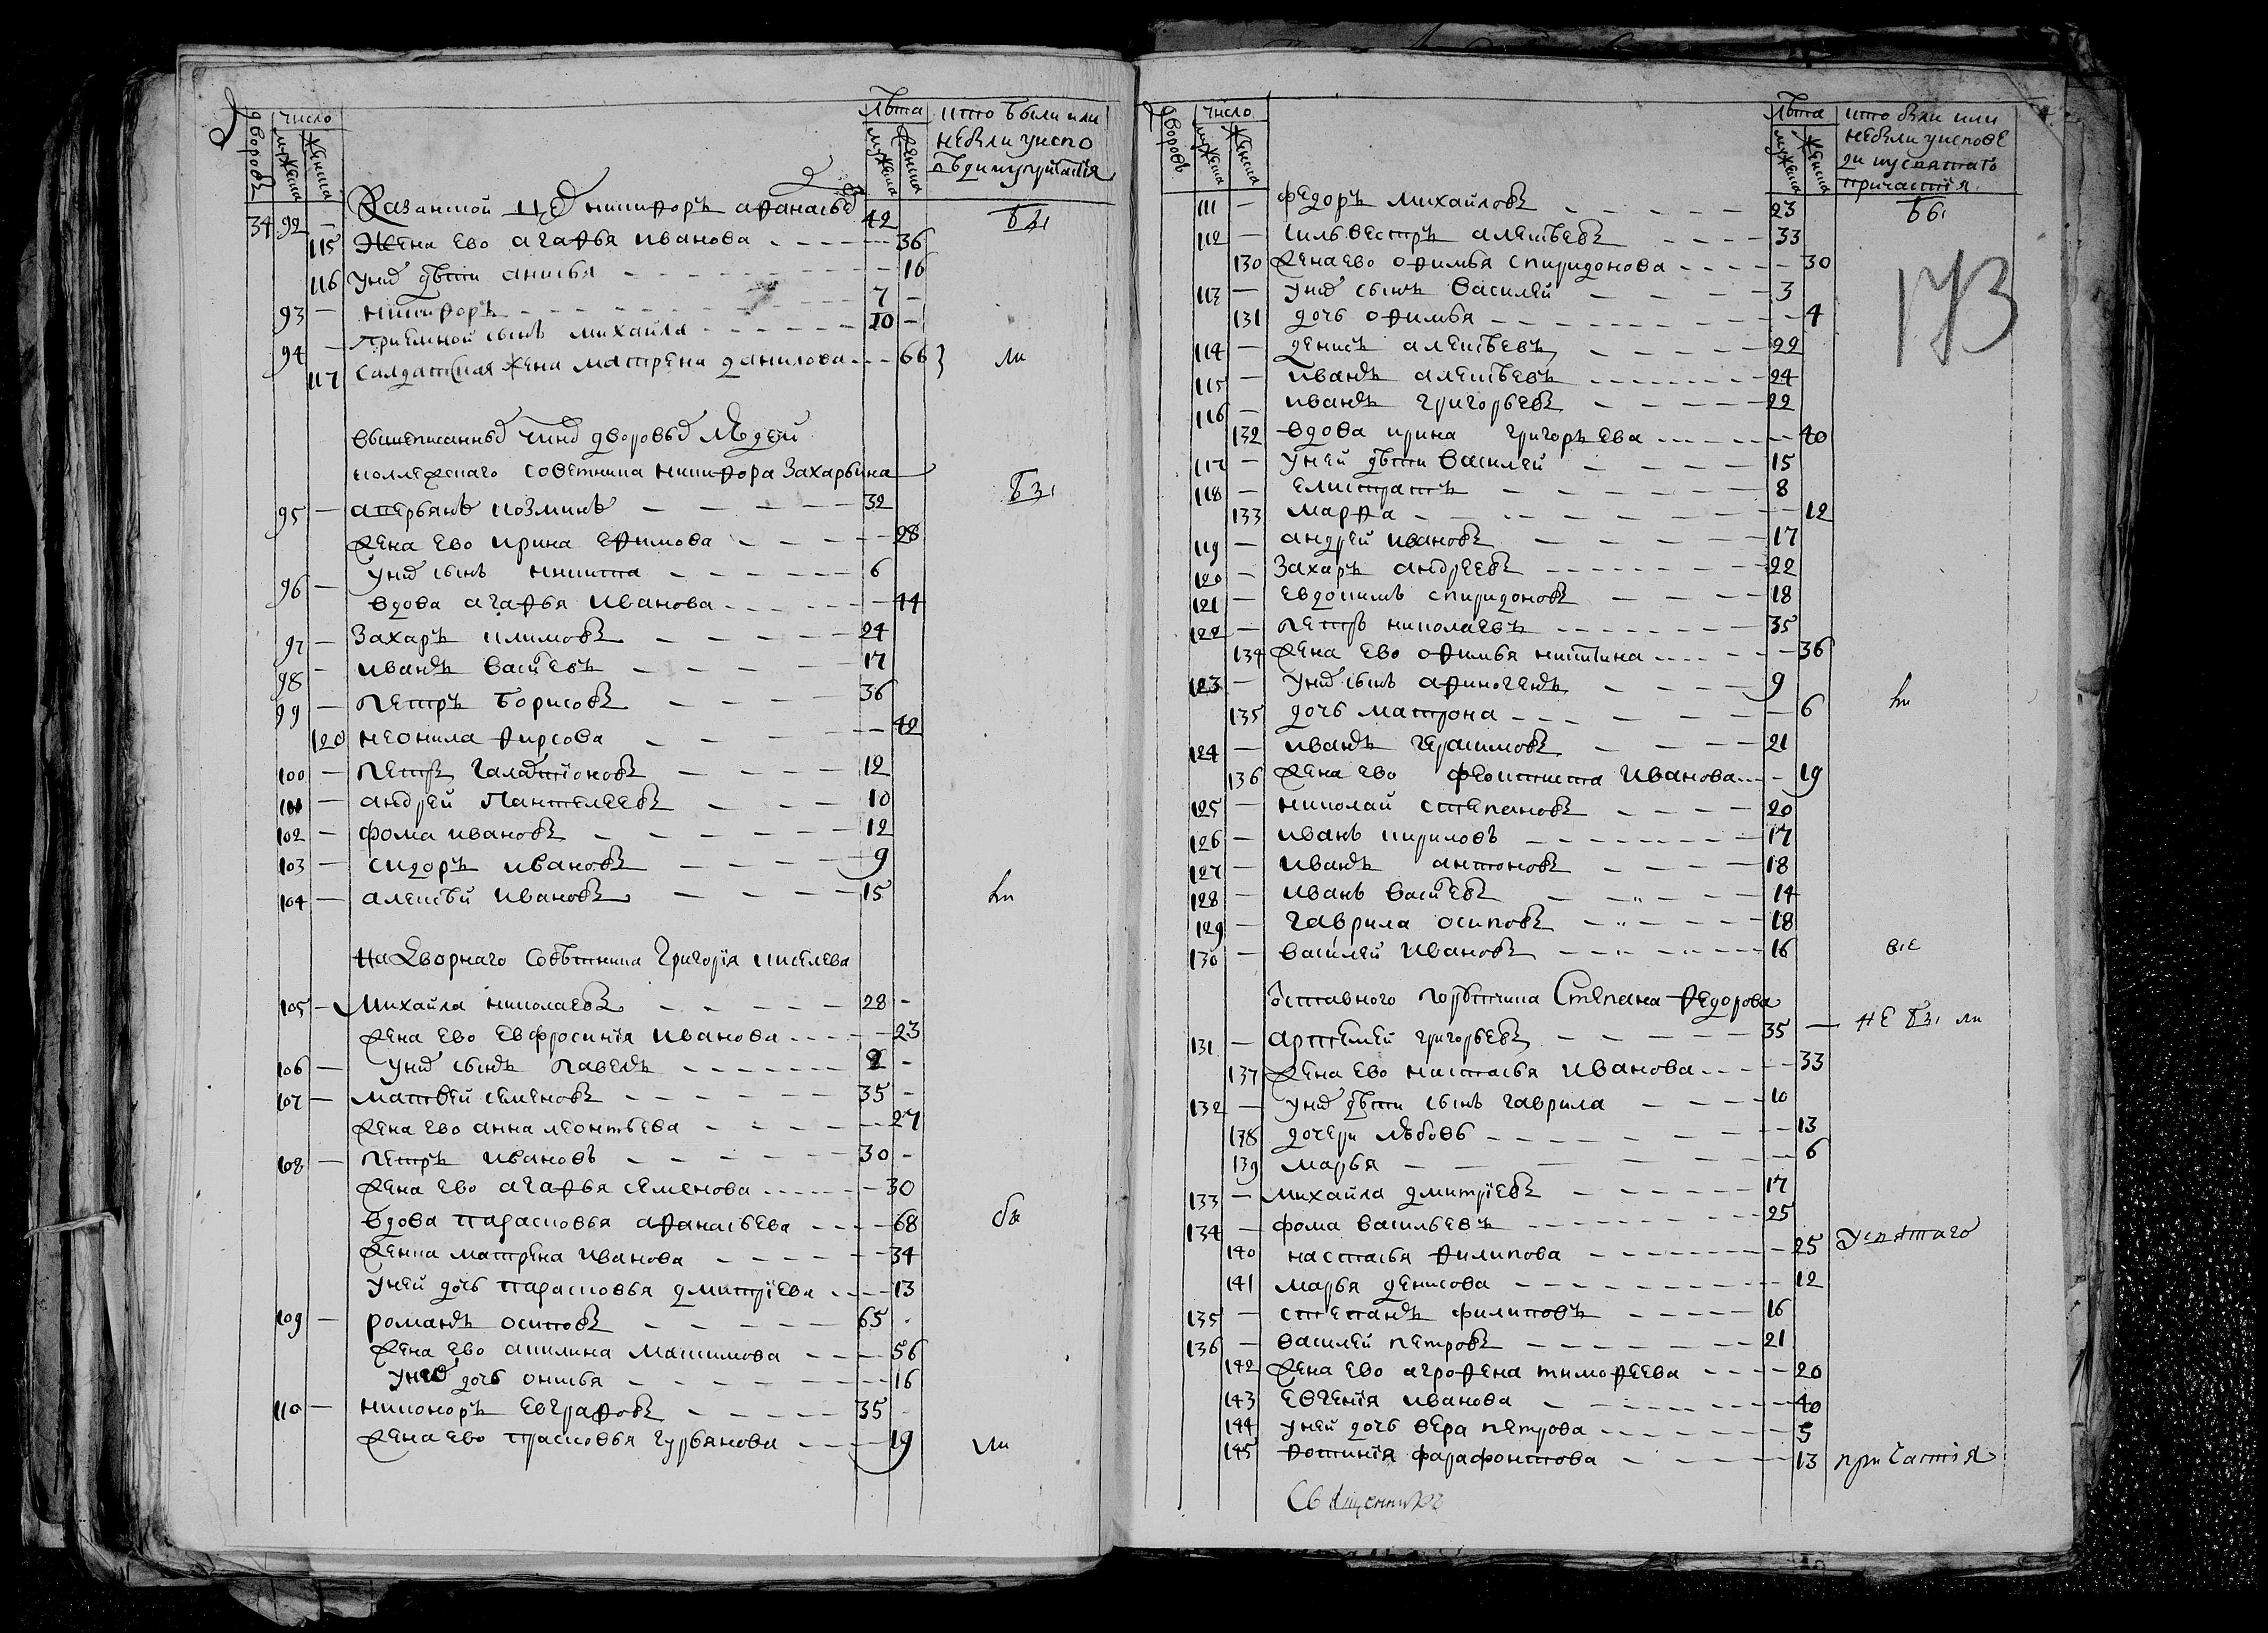 дворовъ число мужеска женска лѣта мужеска женска кто были или
небыли уиспо
вѣди иупричастія
34 92 — Казанской цд никифоръ афанасьв 42 бы
115 Жена ево агафья иванова 36
116 унив дѣти анисья 16
93 — никифоръ 7 —
94 — приемной сынъ михаила 10 —
117 салдатская жена матрена данилова 66 ли
вышеписанныв чинв дворовыв людей
коллежскаго советника никифора Захарьина
95 — аверьянъ козминъ 32 бы
жена ево ирина ефимова 28
96 — унив сынъ никита 6
вдова агафья иванова 44
97 — Захаръ климовъ 24
98 — иванъ васильевъ 17
99 — петръ борисовъ 36
120 неонила фирсова 42
100 — петръ галактіоновъ 12
101 — андрей пантелеевъ 10
102 — фома ивановъ 12
103 — сидоръ ивановъ 9
104 — алексѣй ивановъ 15
надворнаго совѣтника григорія киселева
105 — михайла николаевъ 28 —
жена ево евфросинія иванова 23
106 — унив сынъ павелъ 2 —
107 — матвей семеновъ 35 —
жена ево анна леонтьева 27
108 — петръ ивановъ 30 —
жена ево агафья семенова 30
вдова парасковья афанасьева 68
женка матрена иванова 34
уней дочь парасковья дмитріева 13
109 — романъ осиповъ 65
жена ево акилина максимова 56
унив дочь онисья 16
110 — никоноръ евграфовъ 35
жена ево прасковья гурьянова 19 ли
дворовъ число мужеска женска лѣта мужеска женска кто были или
небыли уисповѣ
ди иусвятаго
причастія
111 — федоръ михайловъ 23 бы
112 — сильвестръ алексѣевъ 33
130 жена ево офимья спиридонова 30
113 — унив сынъ василей 3
131 дочь офимья 4
114 — денисъ алексѣевъ 22
115 — иванъ алексѣевъ 24
116 — иванъ григорьевъ 22
132 вдова ирина григорьева 40
117 — уней дѣти василей 15
118 — елистратъ 8
133 марфа 12
119 — андрей ивановъ 17
120 — захаръ андреевъ 22
121 — евдокимъ спиридоновъ 18
122 — петръ николаевъ 35
134 жена ево офимья никитина 36
123 — унив сынъ афиногенъ 9
135 дочь матрона 6
124 — иванъ герасимовъ 21
136 жена ево феоктиста иванова 19
125 — николай степановъ 20
126 — иванъ кириловъ 17
127 — иванъ антоновъ 18
128 — иванъ васильевъ 14
129 — гаврила осиповъ 18
130 — василей ивановъ 16 все
отставного порутчика Степана федорова
131 — артемей григорьевъ 35 — не бы ли
137 жена ево настасья иванова 33
132 — унив дѣти сынъ гаврила 10
138 дочери любовь 13
139 марья 6
133 — михайла дмитріевъ 17
134 — фома васильевъ 25
140 настасья филипова 25 усвятаго
141 марья денисова 12
135 — степанъ филиповъ 16
136 — василей петровъ 21
142 жена ево агрофена тимофеева 20
143 евгенія иванова 40
144 уней дочь вера петрова 5
145 фотинія фарафонтова 13 причастія
Священникъ
173